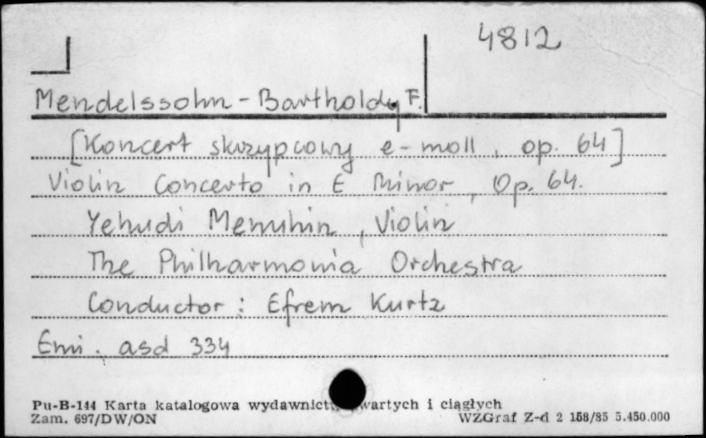 4812
Mendelssohn - Bartholdy F.
[Koncert skrzypcowy e-moll, op. 64]
Violin Concerto in E Minor, Op. 64.
Yehudi Menuhin, Violin
The Philharmonia Orchestra
Conductor: Efrem Kurtz
Emi. asd 334
Pu-B-144 Karta katalogowa wydawnict wartych i ciągłych
Zam. 697/DW/ON WZGraf Z-d 2 158/85 5.450.000